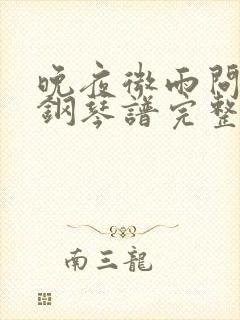 晚夜微雨問
鋼琴譜完整
南三龍